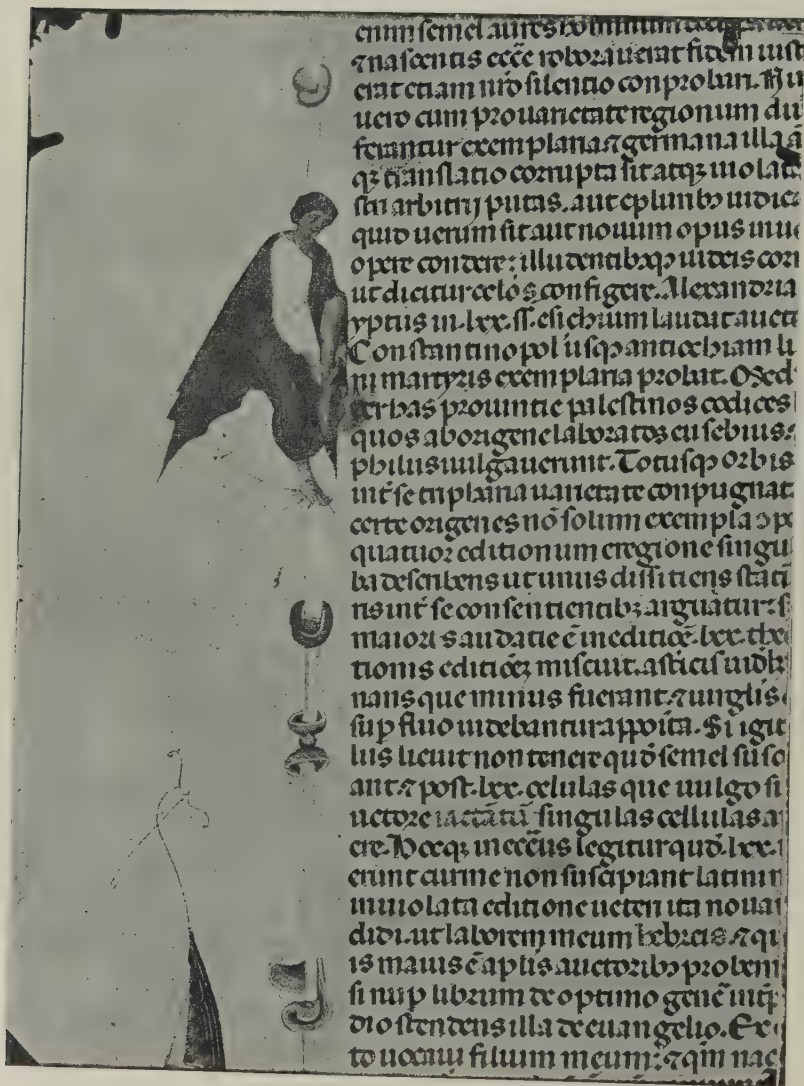 enim semel aures hominum
⁊ nascentis ecc̄e roborauerat fidem iust
erat etiam nr̄o silentio conprobari. Nu
uero cum pro uarietate regionum du
ferantur exemplaria ⁊ germana illa a
qꝫ translatio corrupta sit atqꝫ uiolata
nr̄i arbitrij putas. aut e pluribꝫ iudica
quid uerum sit aut nouum opus in ue
opere condere: illudentibꝫqꝫ iudeis cor
ut dicitur celos configere. Alexandria
yptus in .lxx. esichium laudat aucto
Constantinopol usqꝫ antiochiam lu
ni martyris exemplaria probat. Med
ter has prouintie palestinos codices
quos ab origene laboratos eusebius ⁊
philus uulgauerunt. Totusqꝫ orbis
int̄ se triphana uarietate conpugnat
certe origenes nō solum exempla
quatuor editionum e regione singu
ba describens ut unus dissitiens stati
ris int̄ se consentientibꝫ arguatur: s
maioris audatie ē in editiōe .lxx. the
tionis editiōeꝫ miscuit. astericis
nans que minus fuerant. ⁊ uirglis
sup̄ fluo uidebantur apposita. Si igit
liis licuit non tenere quō semel susc
ant. ⁊ post .lxx. celulas que uulgo si
uctore iactātur singulas cellulas a
ere. Hocqꝫ in ecc̄iis legitur quō .lxx.
erunt cur me non suscipiant latini
inuiolata editione ueteri ita noua
didi. ut laborem meum hebreis. ⁊ q
is maius ē aplis auctoribꝫ probem
si nup̄ librum de optimo gene int̄p̄
dio ostendens illa de euangelio. Ex
to uocaui filium meum: ⁊ qm̄ na